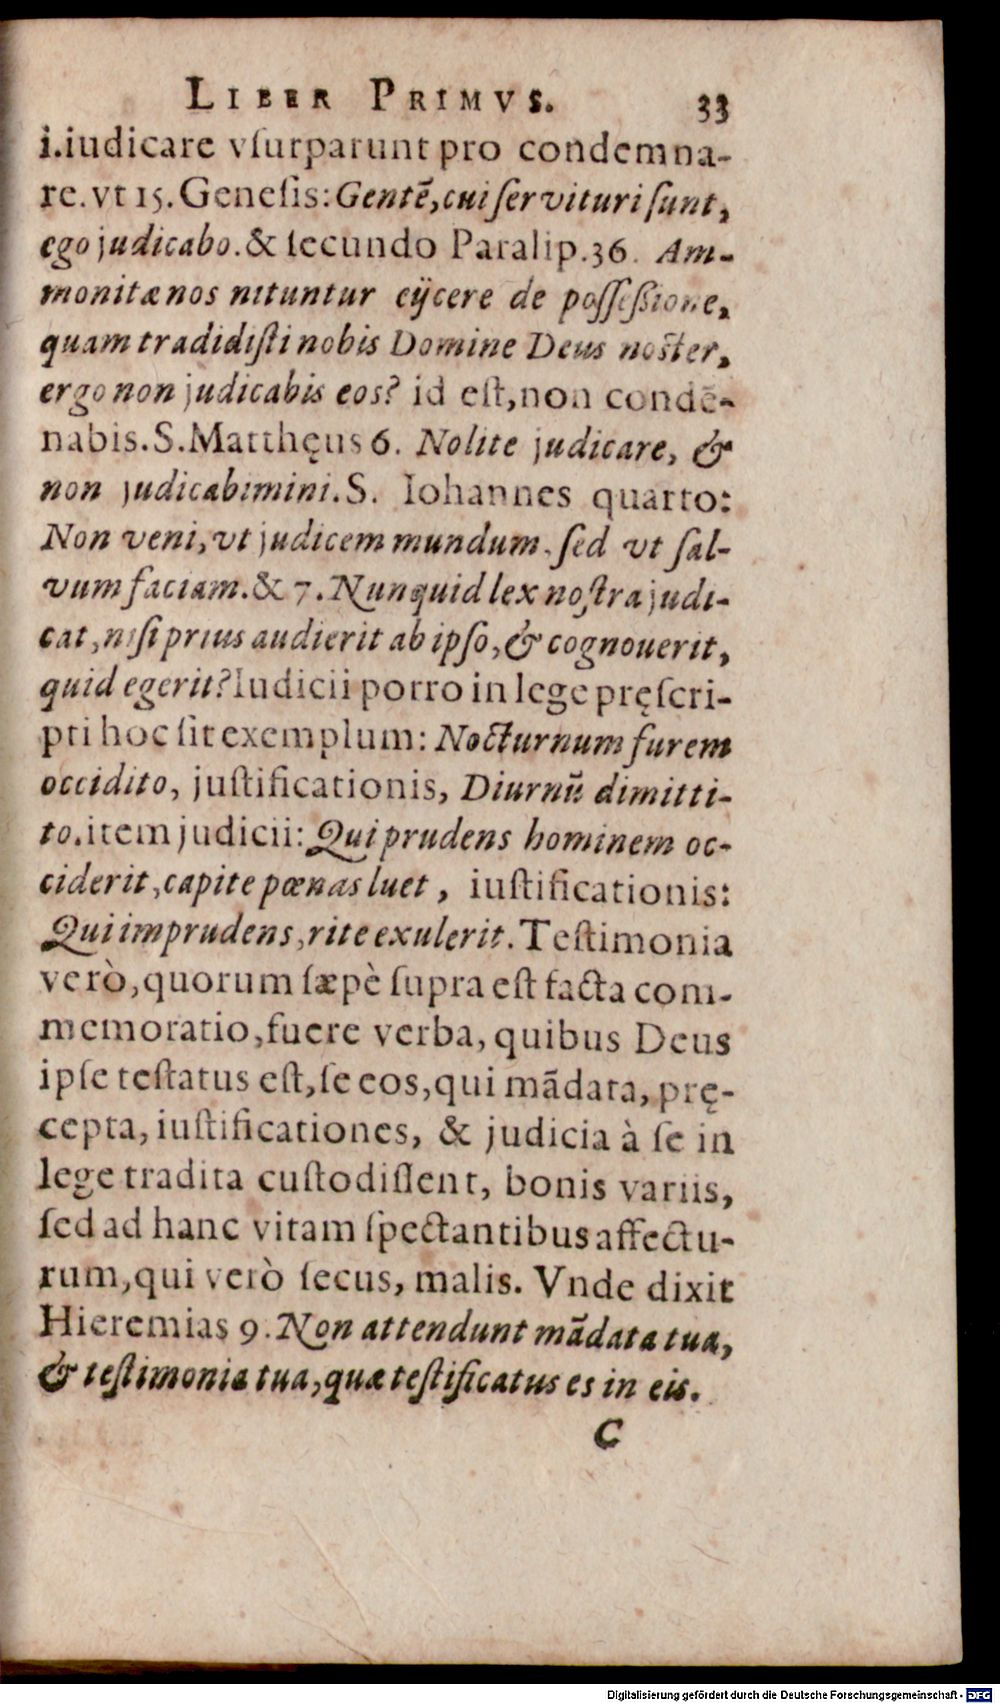 LIBER PRIMVS. 33
i.iudicare vſurparunt pro condemna-
re. vt 15. Geneſis: Gentē, cui ſervituri ſunt,
ego judicabo. & ſecundo Paralip. 36. Am-
monitæ nos nituntur eijcere de poſſeſsione,
quam tradidiſti nobis Domine Deus noſter,
ergo non judicabis eos? id eſt, non condē-
nabis. S. Matthęus 6. Nolite judicare, &
non judicabimini. S. Iohannes quarto:
Non veni, vt judicem mundum. ſed vt ſal-
vum faciam. & 7. Nunquid lex noſtra judi-
cat, niſi prius audierit ab ipſo, & cognouerit,
quid egerit? Iudicii porro in lege pręſcri-
pti hoc ſit exemplum: Nocturnum furem
occidito, juſtificationis, Diurnū dimitti-
to. item judicii: Qui prudens hominem oc-
ciderit, capite pœnas luet, iuſtificationis:
Qui imprudens, rite exulerit. Teſtimonia
verò, quorum ſæpè ſupra eſt facta com-
memoratio, fuere verba, quibus Deus
ipſe teſtatus eſt, ſe eos, qui mādata, prę-
cepta, iuſtificationes, & judicia à ſe in
lege tradita cuſtodiſſent, bonis variis,
ſed ad hanc vitam ſpectantibus affectu-
rum, qui verò ſecus, malis. Vnde dixit
Hieremias 9. Non attendunt mādata tua,
& teſtimonia tua, quæ teſtificatus es in eis.
C
Digitalisierung gefördert durch die Deutsche Forschungsgemeinschaft - DFG